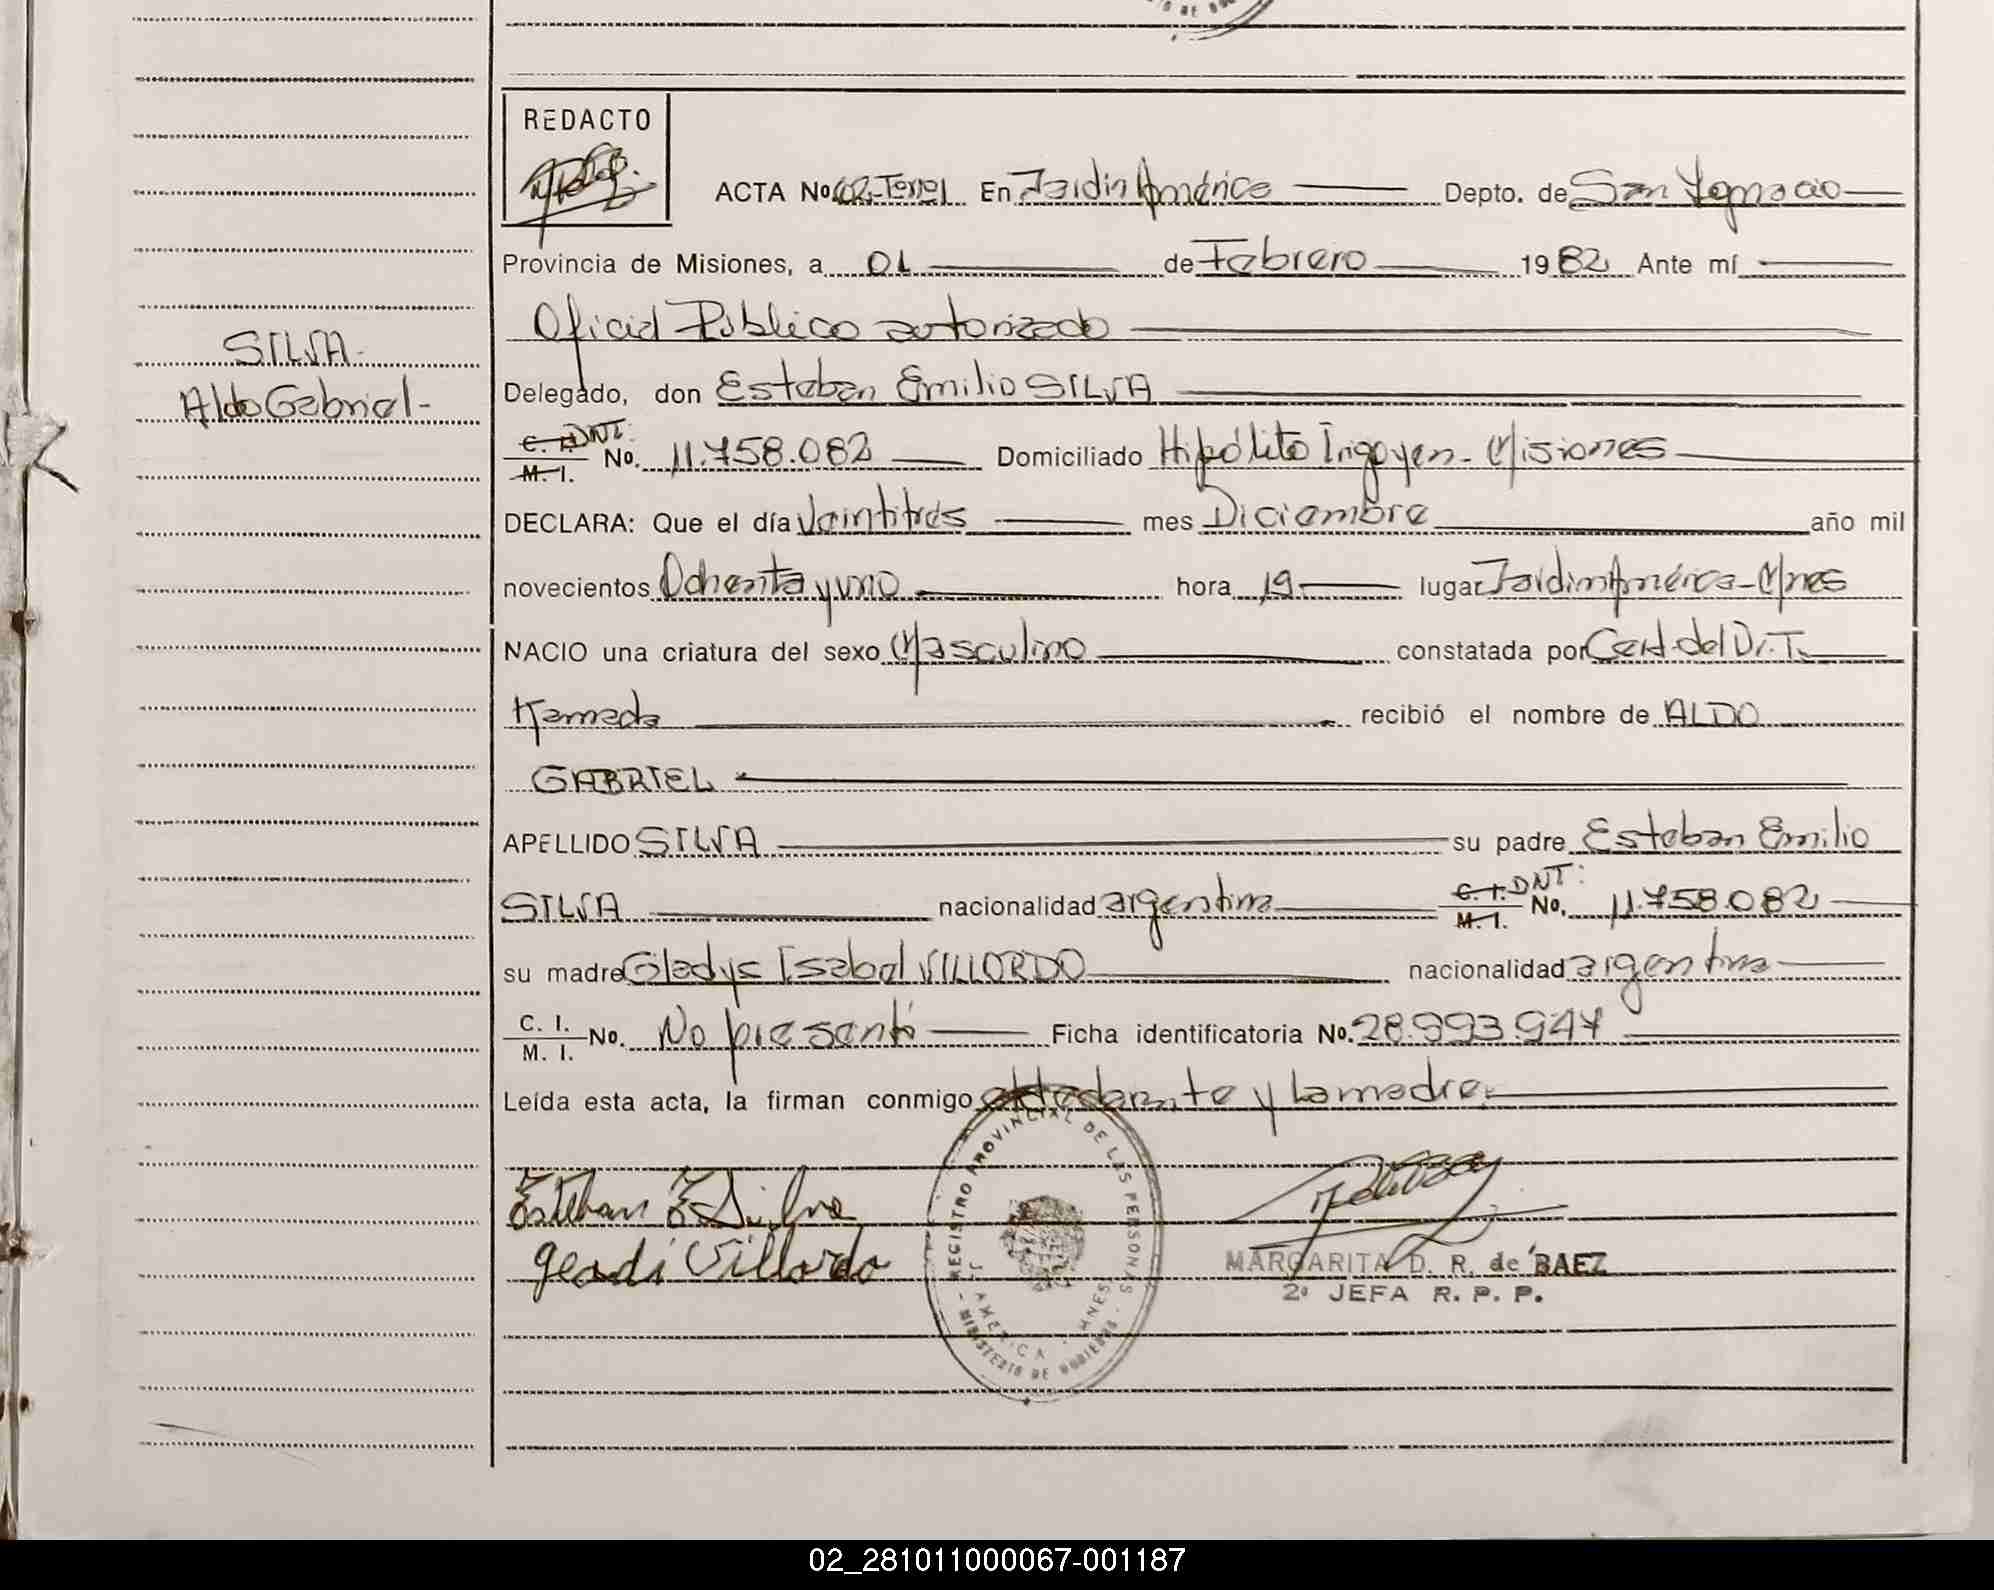 REDACTO
ACTA No 62-Tomo I En Jardín América Depto. de San Ignacio
Provincia de Misiones, a 01 de Febrero 1982 Ante mí
Oficial Público autorizado
SILVA-
Aldo Gabriel-
Delegado, don Esteban Emilio SILVA
C. I. DNI: M. I. No. 11.758.082 Domiciliado Hipólito Irigoyen - Misiones
DECLARA: Que el día Veintitrés mes Diciembre año mil
novecientos Ochenta y uno hora 19 lugar Jardín América - Mnes
NACIO una criatura del sexo Masculino constatada por Cert. del Dr. T.
Kameda recibió el nombre de ALDO
GABRIEL
APELLIDO SILVA su padre Esteban Emilio
SILVA nacionalidad argentina C. I. DNI: M. I. No. 11.758.082
su madre Gladys Isabel VILLORDO nacionalidad argentina
C. I. M. I. No. No presentó Ficha identificatoria No. 28.993.947
Leída esta acta, la firman conmigo y la madre.
Esteban E Silva
Villordo
REGISTRO PROVINCIAL DE LAS PERSONAS
J. AMERICA - MNES
MINISTERIO DE GOBIERNO
MARGARITA D. R. de BAEZ
2ª JEFA R. P. P.
02_281011000067-001187